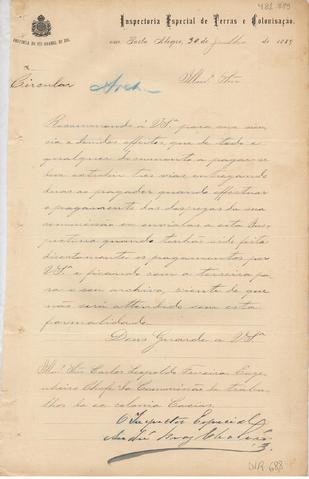 481.989
Inspectoria Especial de Terras e Colonisação,
PROVINCIA DO RIO GRANDE DO SUL
em Porto Alegre, 30 de Junho de 1889
Circular
Illmo. Snr.
Recommendo á V.Sª. para sua sciencia
e devidos effeitos que de todo e
qualquer documento a pagar-se
deve extrahir tres vias entregando
duas ao pagador quando effectuar
o pagamento das despezas da sua
commissão ou envial-as a esta Ins
pectoria quando tenha sido feito
directamente os pagamentos por
V.Sª. e ficando com a terceira pa
ra o seu archivo, sciente de que
não será attendido sem esta
formalidade.
Deos Guarde a V.Sª.
Illmo. Snr. Carlos Leopoldo Ferreira Enge
nheiro Chefe da Commissão de traba
lhos da ex colonia Caxias.
O Inspector Especial
DIR 688